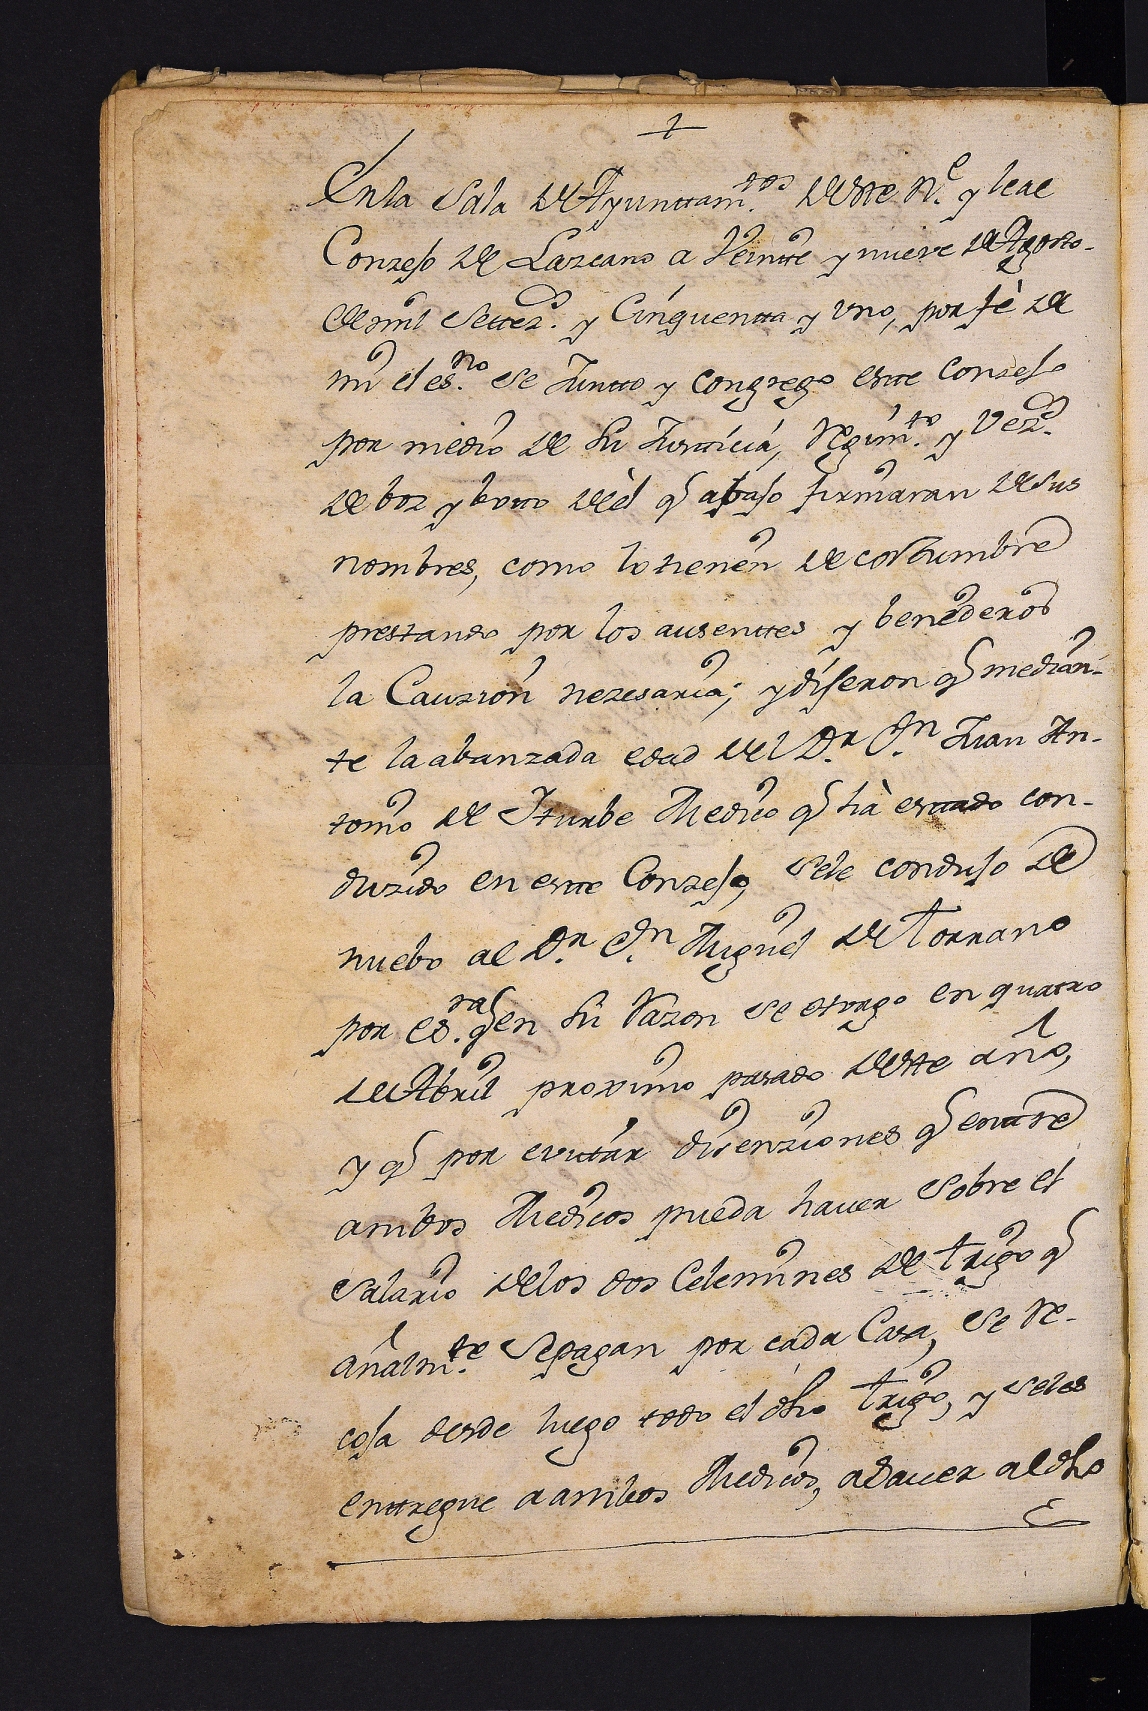 +
En la Sala de Ayunttam.tos deste N.e y leal
Conzejo de Lazcano a Veintte y nueve de Agosto
de mil Settez.s y Cinquentta y uno, por fè de
mi el es.no se Juntto y congrego estte Conzejo
por medio de su Justticia, Regim.to y Vez.s
de boz y botto de èl q abajo firmaran de sus
nombres, como lo tienen de costumbre
prestando por los ausenttes y benideros
la Cauzion nezesaria; y dijeron q median-
te la abanzada edad del D.r D.n Juan An-
tonio de Iturbe Medico q hà esttado con-
duzido en estte Conzejo, se le condujo de
nuebo al D.r D.n Miguel de Torrano
por es.ra q en su Razon se otorgo en quatro
de Abril proximo pasado deste año,
y q por evitar disenziones q enttre
ambos Medicos pueda haver sobre el
salario de los dos Celemines de trigo q
añalm.te se pagan por cada Casa, se Re-
coja desde luego todo el dho trigo, y se les
enttregue a ambos Medicos, a saver al dho